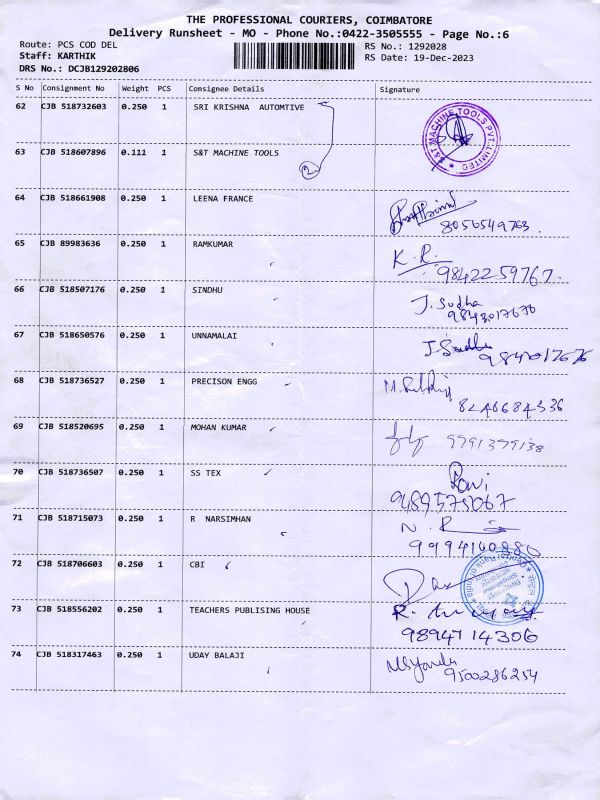 THE PROFESSIONAL COURIERS, COIMBATORE
Delivery Runsheet - MO - Phone No.:0422-3505555 - Page No.:6
Route: PCS COD DEL
RS No.: 1292028
Staff: KARTHIK
RS Date: 19-Dec-2023
DRS No.: DCJB129202806
S No Consignment No Weight PCS Consignee Details Signature
62 CJB 518732603 0.250 1 SRI KRISHNA AUTOMTIVE
S&T MACHINE TOOLS PVT. LIMITED
63 CJB 518607896 0.111 1 S&T MACHINE TOOLS
2
64 CJB 518661908 0.250 1 LEENA FRANCE
8056549763
65 CJB 89983636 0.250 1 RAMKUMAR
K. R.
9842259767.
66 CJB 518507176 0.250 1 SINDHU
J. Sudha
9843017676
67 CJB 518650576 0.250 1 UNNAMALAI
68 CJB 518736527 0.250 1 PRECISON ENGG
69 CJB 518520695 0.250 1 MOHAN KUMAR
70 CJB 518736507 0.250 1 SS TEX
Ravi
9489575067
71 CJB 518715073 0.250 1 R NARSIMHAN
N. R
9994160880
72 CJB 518706603 0.250 1 CBI
73 CJB 518556202 0.250 1 TEACHERS PUBLISING HOUSE
9894714306
74 CJB 518317463 0.250 1 UDAY BALAJI
9500286254